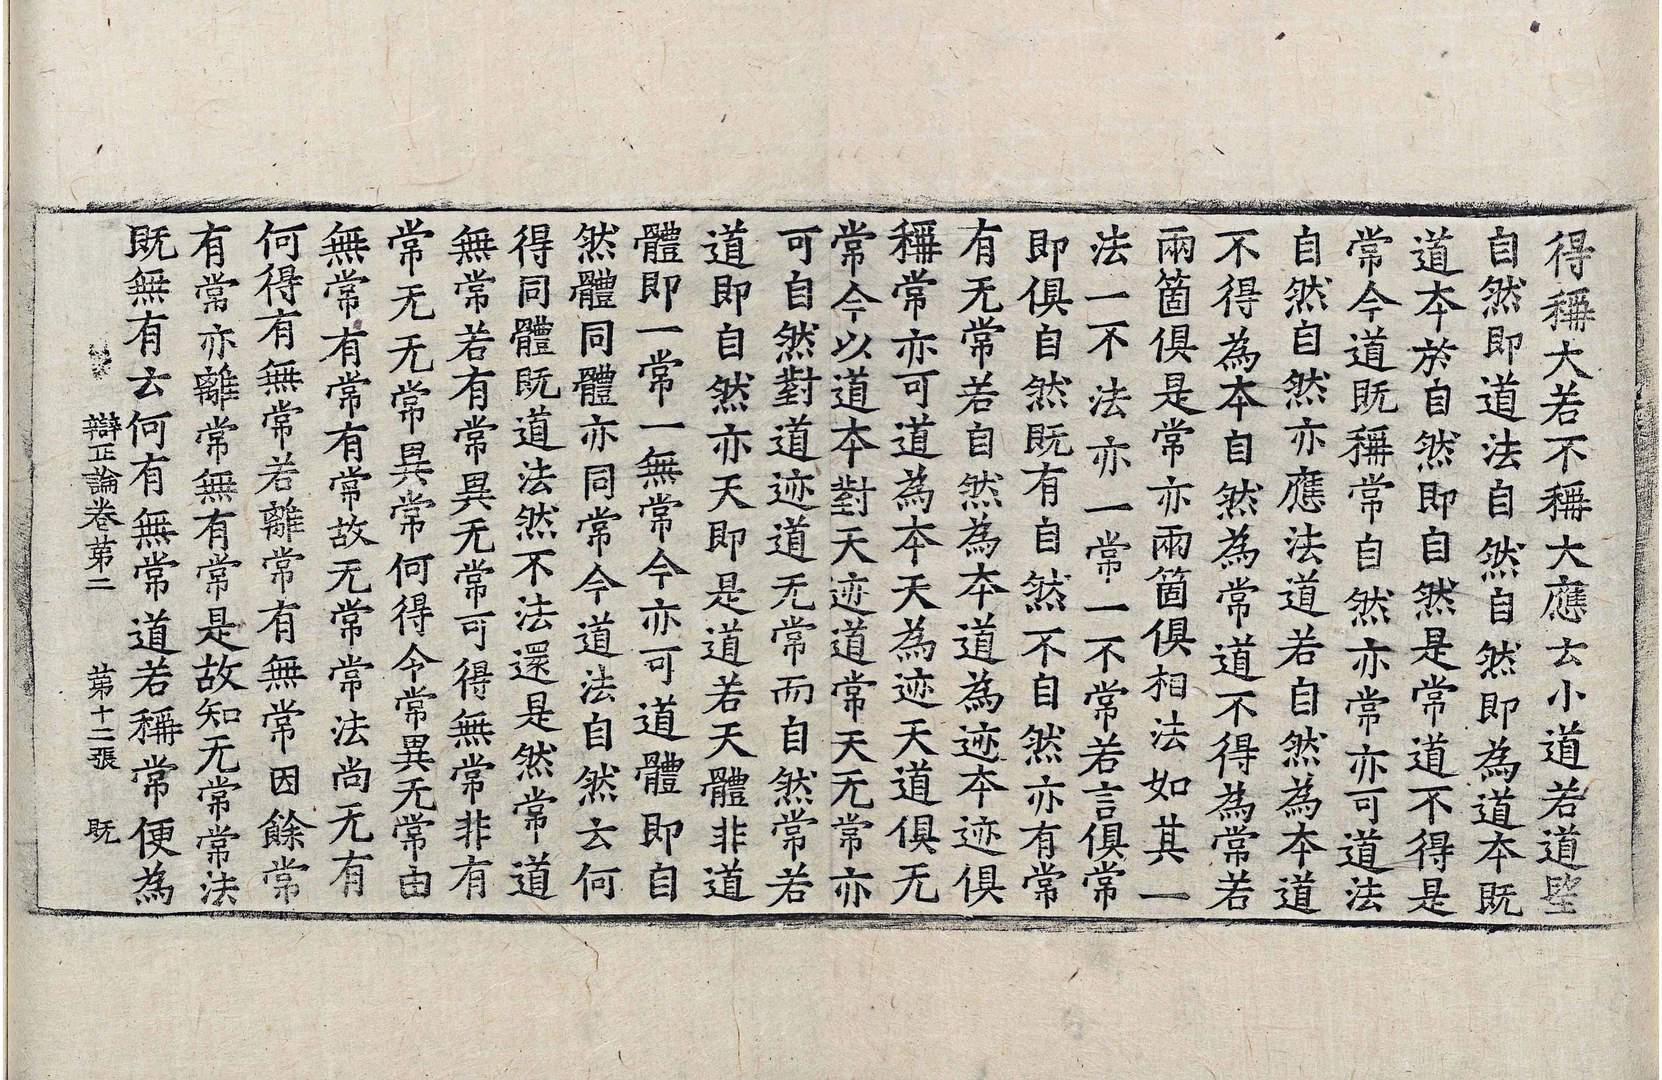 得稱大若不稱大應云小道若道望
自然即道法自然自然即為道本既
道本於自然即自然是常道不得是
常今道既稱常自然亦常亦可道法
自然自然亦應法道若自然為本道
不得為本自然為常道不得為常若
兩箇俱是常亦兩箇俱相法如其一
法一不法亦一常一不常若言俱常
即俱自然既有自然不自然亦有常
有无常若自然為本道為迹本迹俱
稱常亦可道為本天為迹天道俱无
常今以道本對天迹道常天无常亦
可自然對道迹道无常而自然常若
道即自然亦天即是道若天體非道
體即一常一無常今亦可道體即自
然體同體亦同常今道法自然云何
得同體既道法然不法還是然常道
無常若有常異无常可得無常非有
常无无常異常何得令常異无常由
無常有常有常故无常常法尚无有
何得有無常若離常有無常因餘常
有常亦離常無有常是故知无常常法
既無有云何有無常道若稱常便為
辯正論卷第二　第十二張　既